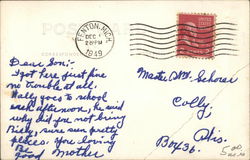 POST
CORRESPONDENCE
FENTON, MICH.
DEC
2 PM
1949
Dear Son:-
I got here just fine
no trouble at all.
Wally goes to school
each afternoon, he said
why did you not bring
Billy, sure sure pretty
places. You loving
good Mother
Master Wm.
Colby,
Wis.
Box 36.